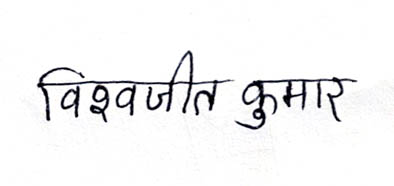 विश्वजीत कुमार